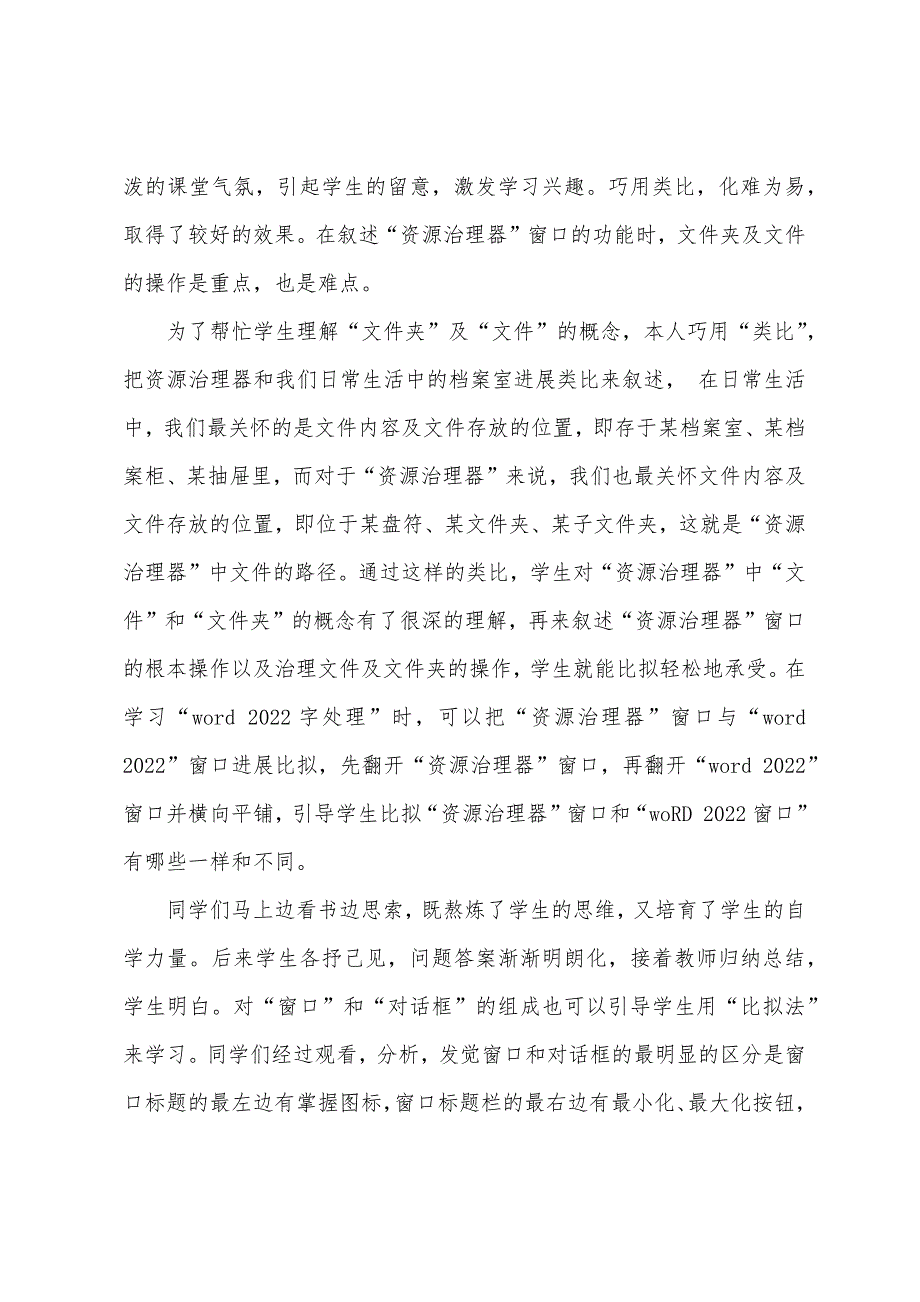 泼的课堂气氛，引起学生的留意，激发学习兴趣。巧用类比，化难为易，
取得了较好的效果。在叙述“资源治理器”窗口的功能时，文件夹及文件
的操作是重点，也是难点。
为了帮忙学生理解“文件夹”及“文件”的概念，本人巧用“类比”，
把资源治理器和我们日常生活中的档案室进展类比来叙述， 在日常生活
中，我们最关怀的是文件内容及文件存放的位置，即存于某档案室、某档
案柜、某抽屉里，而对于“资源治理器”来说，我们也最关怀文件内容及
文件存放的位置，即位于某盘符、某文件夹、某子文件夹，这就是“资源
治理器”中文件的路径。通过这样的类比，学生对“资源治理器”中“文
件”和“文件夹”的概念有了很深的理解，再来叙述“资源治理器”窗口
的根本操作以及治理文件及文件夹的操作，学生就能比拟轻松地承受。在
学习“word 2022 字处理”时，可以把“资源治理器”窗口与“word
2022”窗口进展比拟，先翻开“资源治理器”窗口，再翻开“word 2022”
窗口并横向平铺，引导学生比拟“资源治理器”窗口和“woRD 2022 窗口”
有哪些一样和不同。
同学们马上边看书边思索，既熬炼了学生的思维，又培育了学生的自
学力量。后来学生各抒己见，问题答案渐渐明朗化，接着教师归纳总结，
学生明白。对“窗口”和“对话框”的组成也可以引导学生用“比拟法”
来学习。同学们经过观看，分析，发觉窗口和对话框的最明显的区分是窗
口标题的最左边有掌握图标，窗口标题栏的最右边有最小化、最大化按钮，